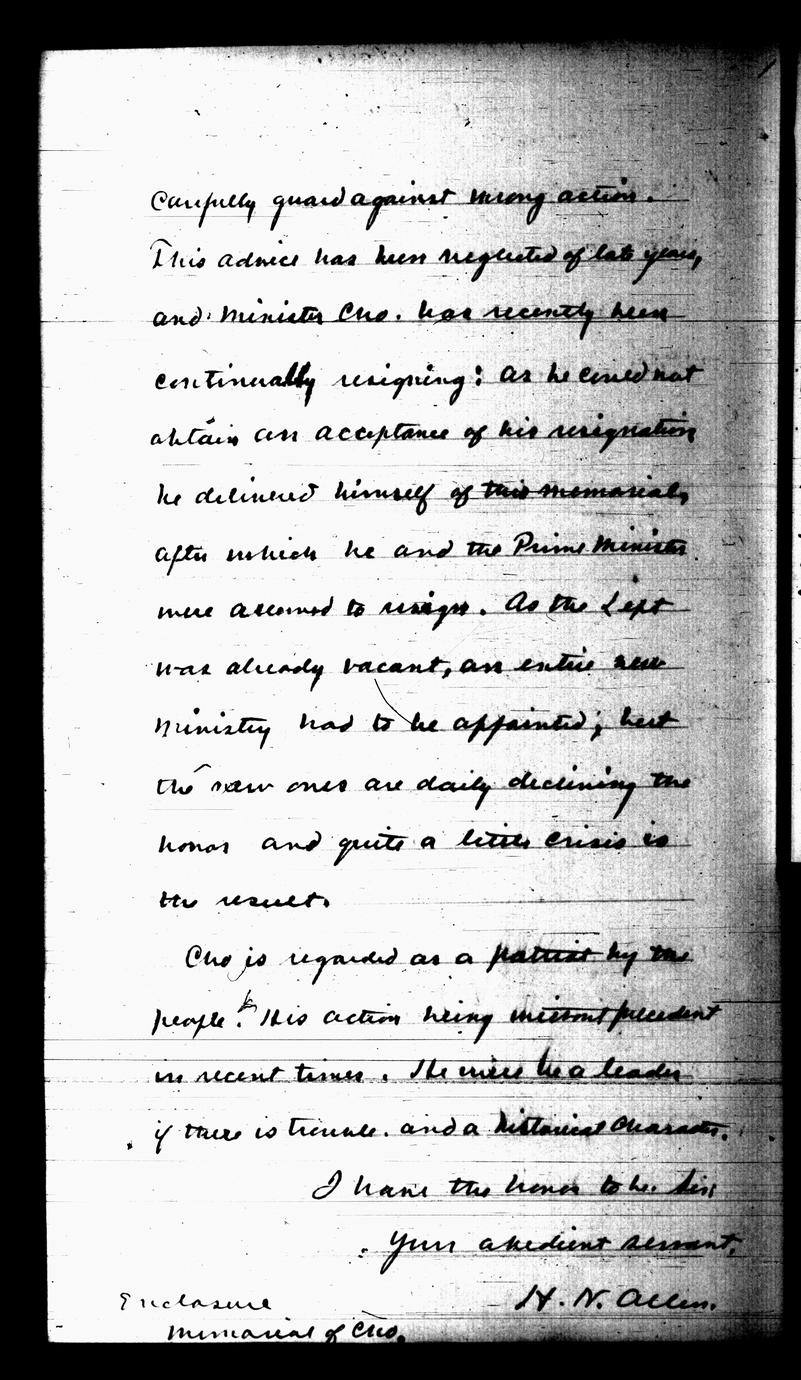 Carefully guard against wrong action.
This advice has been neglected of late years,
and Minister Cho. has recently been
continually resigning: as he could not
obtain an acceptance of his resignation
he delivered himself of this memorial,
after which he and the Prime Minister
were allowed to resign. As the Left
was already vacant, an entire new
Ministry had to be appointed; but
the new ones are daily declining the
honor and quite a little crisis is
the result.
Cho is regarded as a patriot by the
people. His action being without precedent
in recent times. He will be a leader
if there is trouble. and a historical Character.
I have the honor to be. Sir;
Your obedient servant,
H. N. Allen.
Enclosure
Memorial of Cho.